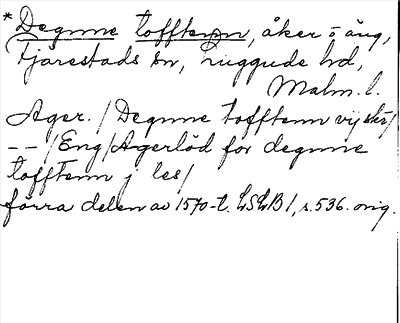 * Degnne tofftenn, åker o äng,
Fjärestads sn, Luggude hd,
Malm. l.
Ager. / Degnne tofftenn vij skr/
-- / Eng / Agerlöd for degnne
tofftenn j les /
förra delen av 1570-t. LSLB 1, s. 536. orig.